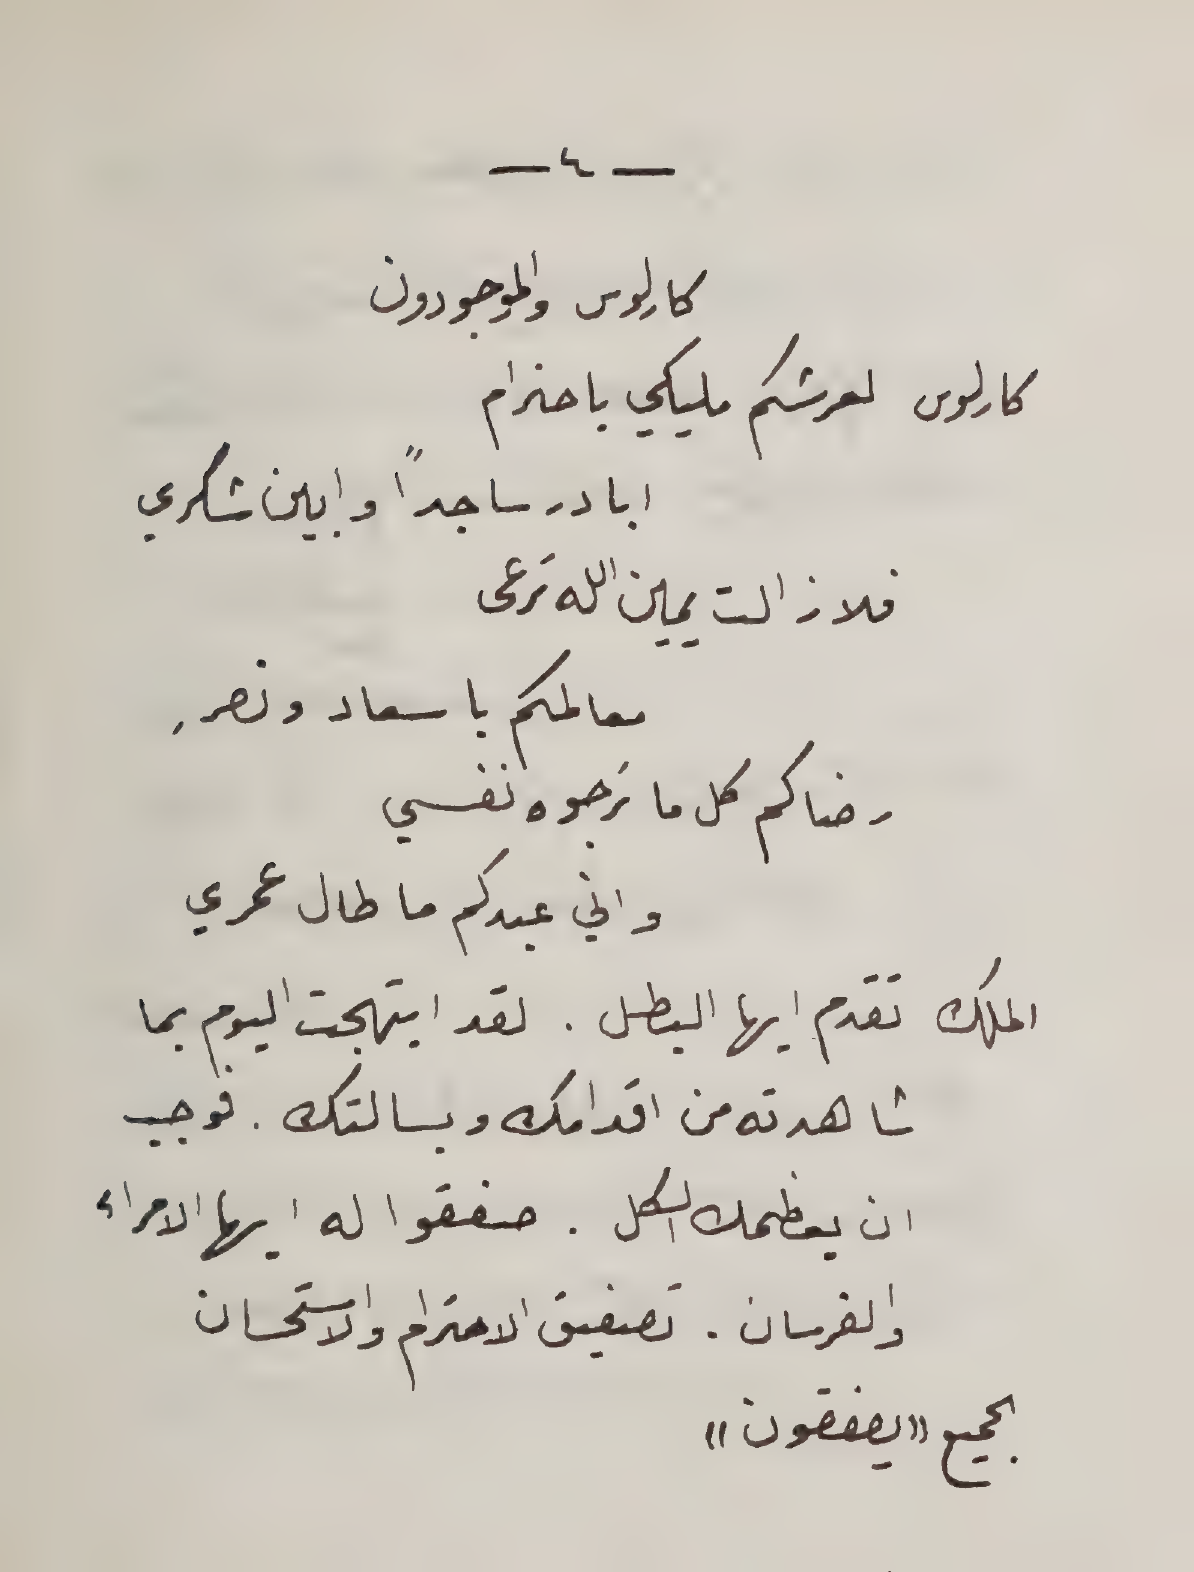 — ٤ —
كارلوس والموجودون
كارلوس لعرشكم مليكي باحترام
ابادر ساجداً وابين شكري
فلا زالت يمين الله تَرعى
معالمكم باسعاد ونصرِ
رضاكم كل ما تَرجوه نفسي
واني عبدكم ما طال عمري
الملك تقدم ايها البطل . لقد ابتهجت اليوم بما
شاهدته من اقدامك وبسالتك . فوجب
ان يعظمك الكل . صفقوا له ايها الامراء
والفرسان . تصفيق الاحترام والاستحسان
الجميع «يصفقون»